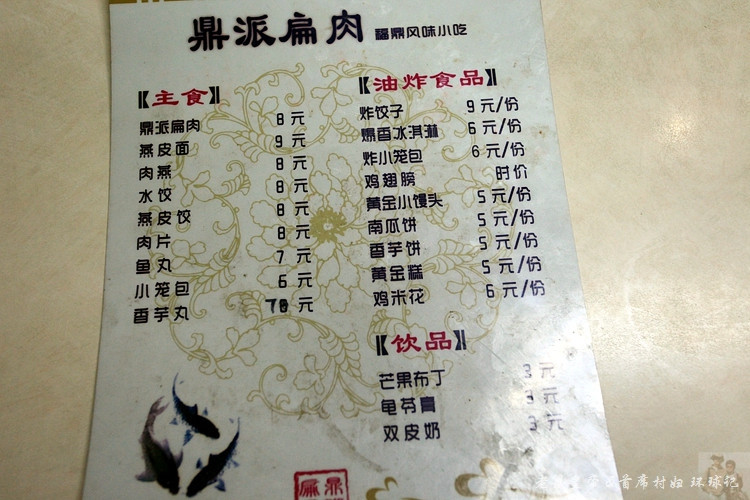 鼎派扁肉 福鼎风味小吃
【主食】
鼎派扁肉 8 元
燕皮面 9 元
肉燕 8 元
水饺 8 元
燕皮饺 8 元
肉片 8 元
鱼丸 7 元
小笼包 6 元
香芋丸 70 元
【油炸食品】
炸饺子 9 元/份
爆香冰淇淋 6 元/份
炸小笼包 6 元/份
鸡翅膀 时价
黄金小馒头 5 元/份
南瓜饼 5 元/份
香芋饼 5 元/份
黄金糕 5 元/份
鸡米花 6 元/份
【饮品】
芒果布丁 3 元
龟苓膏 3 元
双皮奶 3 元
首席村妞 环球记